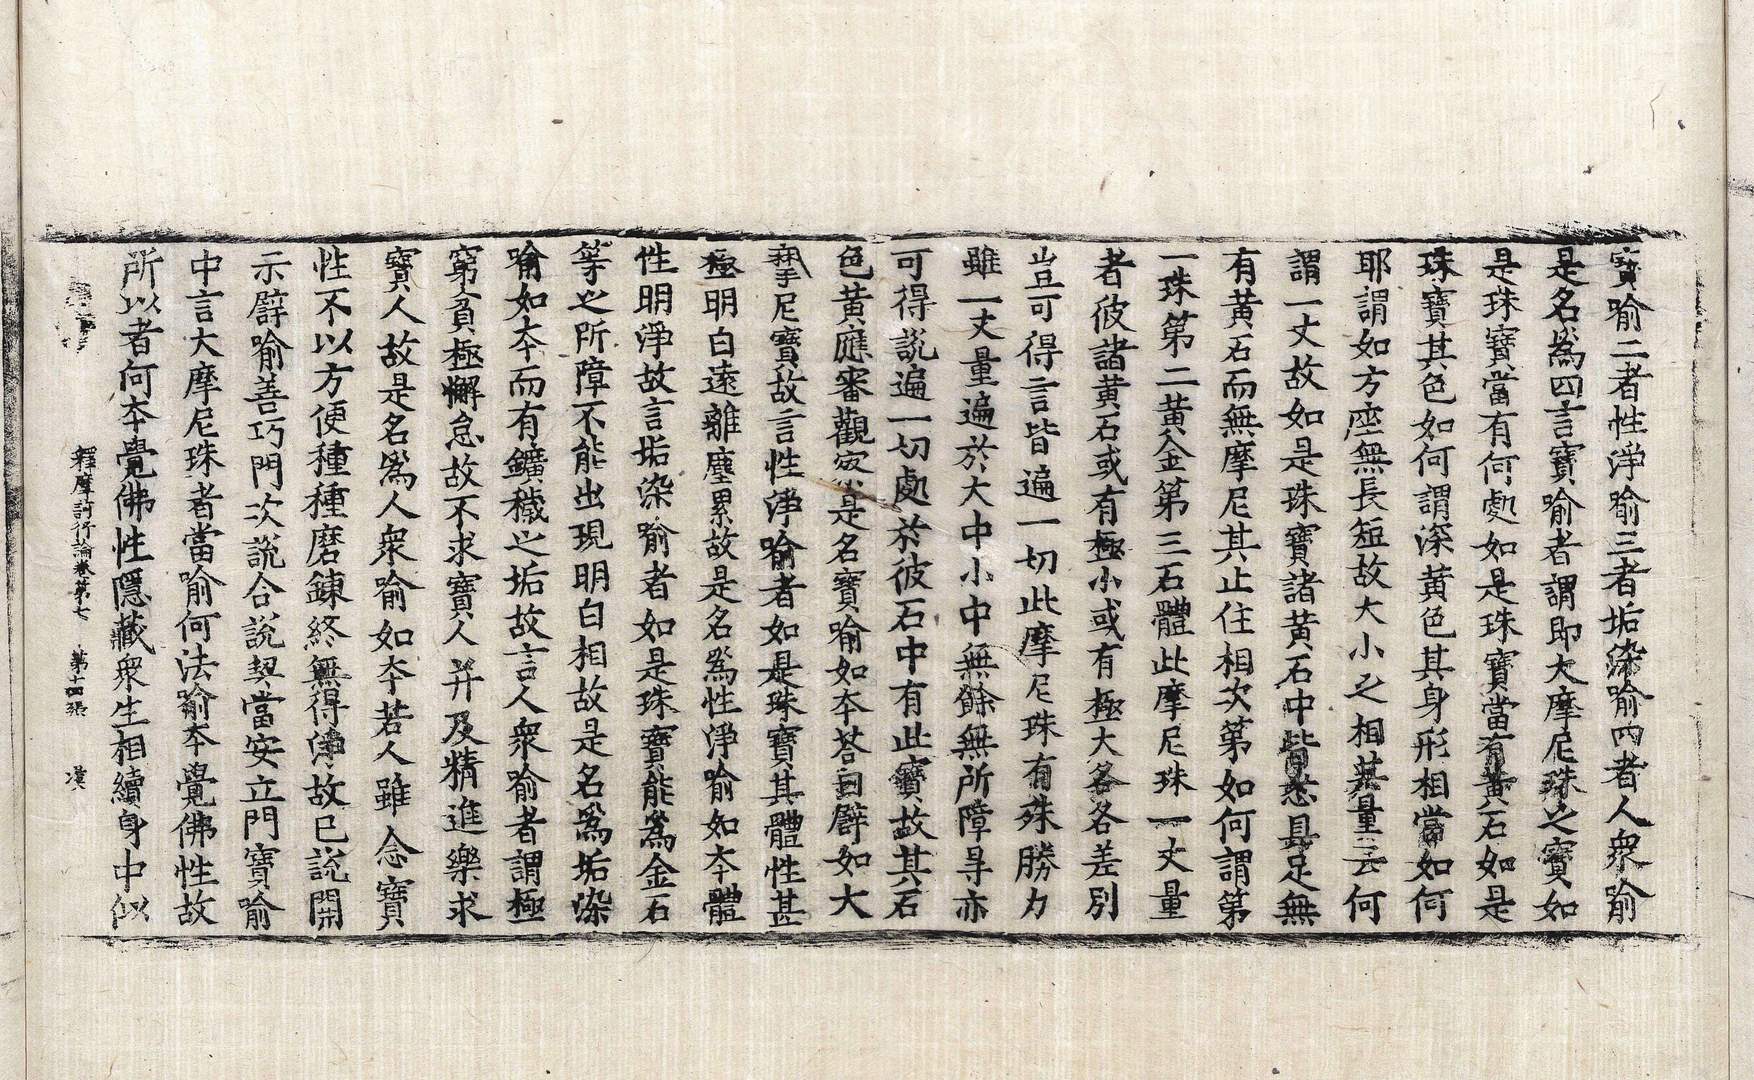 寶喻二者性淨喻三者垢染喻四者人衆喻
是名爲四言寶喻者謂即大摩尼珠之寶如
是珠寶當有何處如是珠寶當有黃石如是
珠寶其色如何謂深黃色其身形相當如何
耶謂如方座無長短故大小之相其量云何
謂一丈故如是珠寶諸黃石中皆悉具足無
有黃石而無摩尼其止住相次第如何謂第
一珠第二黃金第三石體此摩尼珠一丈量
者彼諸黃石或有極小或有極大各各差別
豈可得言皆遍一切此摩尼珠有殊勝力
雖一丈量遍於大中小中無餘無所障㝵亦
可得說遍一切處於彼石中有此寶故其石
色黃應審觀察是名寶喻如本若曰譬如大
摩尼寶故言性淨喻者如是珠寶其體性甚
極明白遠離塵累故是名爲性淨喻如本體
性明淨故言垢染喻者如是珠寶能爲金石
等之所障不能出現明白相故是名爲垢染
喻如本而有鑛穢之垢故言人衆喻者謂極
窮貧極懈怠故不求寶人并及精進樂求
寶人故是名爲人衆喻如本若人雖念寶
性不以方便種種磨鍊終無得淨故已說開
示譬喻善巧門次說合說契當安立門寶喻
中言大摩尼珠者當喻何法喻本覺佛性故
所以者何本覺佛性隱藏衆生相續身中似
釋摩訶衍論卷第七　第十四張　漢